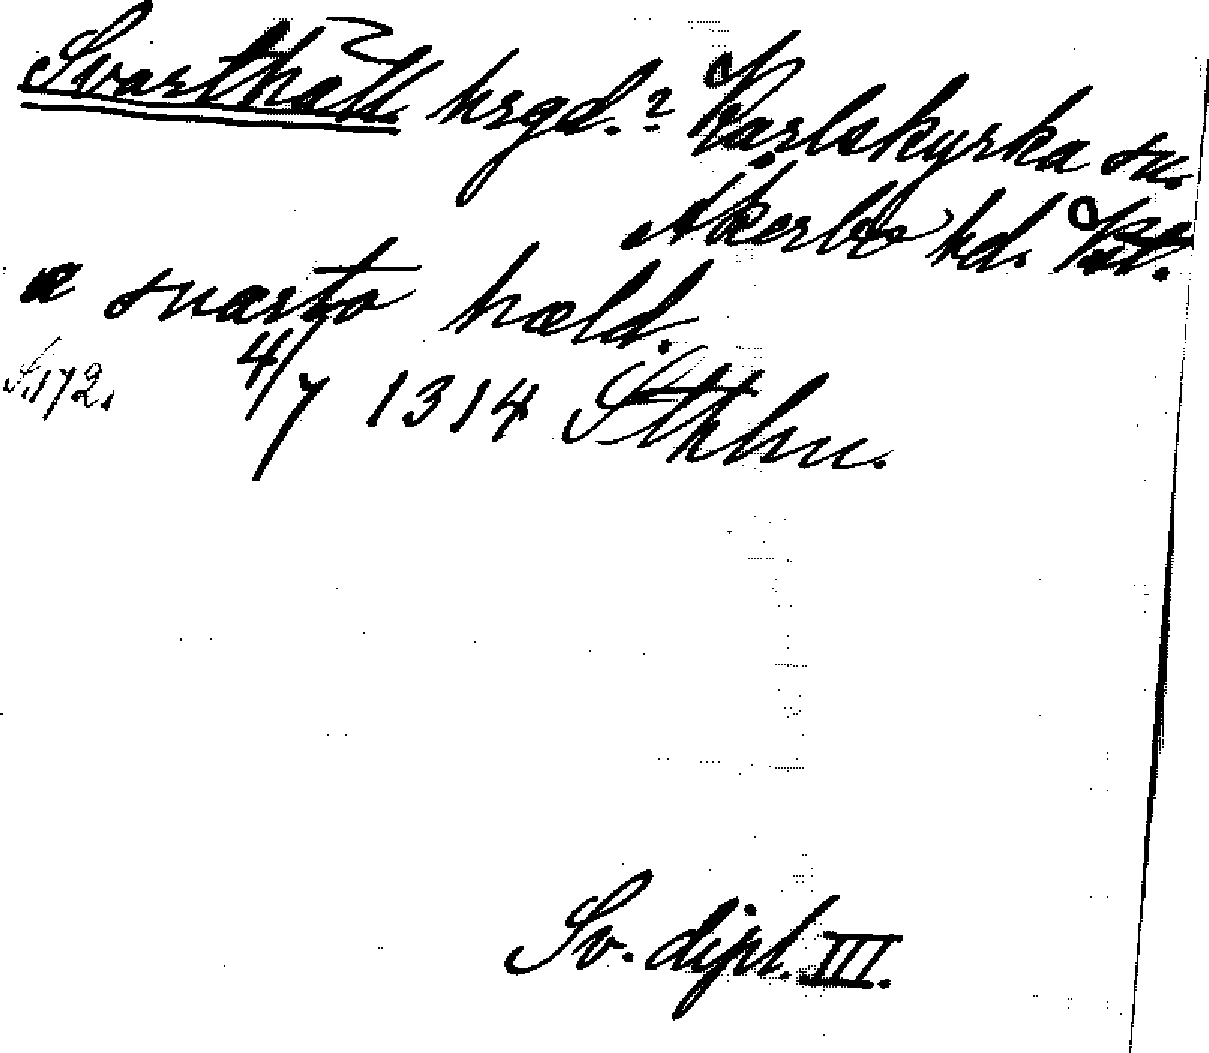 Svarthäll hrgd.? Karlskyrka sn.
Åkerbo hd. Vst.
a suarta hæld.
S. 172. 4/7 1314 Sthlm.
Sv. dipl. III.